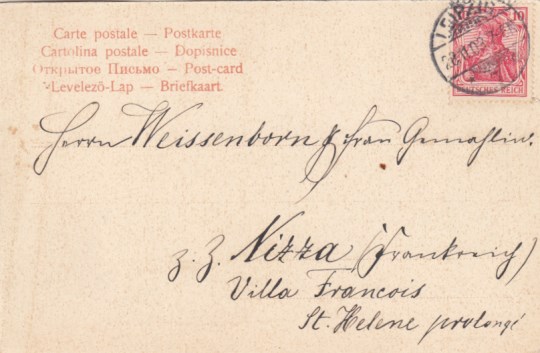 Carte postale — Postkarte
Cartolina postale — Dopisnice
Открытое Письмо — Post-card
Levelező-Lap — Briefkaart.
LEIPZIG
10
DEUTSCHES REICH
Herrn Weissenborn & Frau Gemahlin.
z. Z. Nizza (Frankreich)
Villa Francois
St. Helene prolongé